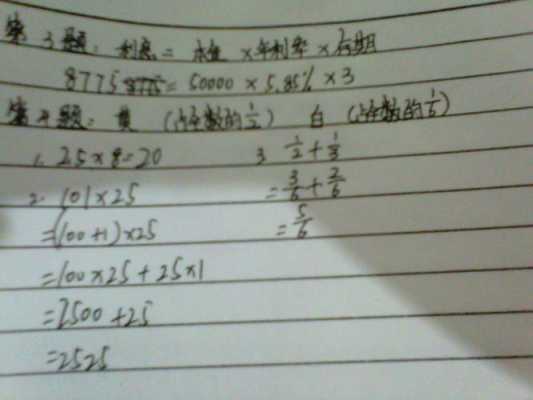 第3题: 利息 = 本值 × 年利率 × 存期
8775 = 50000 × 5.85% × 3
第4题: 黄 (占全数的1/2) 白 (占全数的1/6)
1. 25×8=20 3. 1/2 + 1/3
2. 101×25 = 3/6 + 2/6
=(100+1)×25 = 5/6
=100×25+25×1
=2500+25
=2525